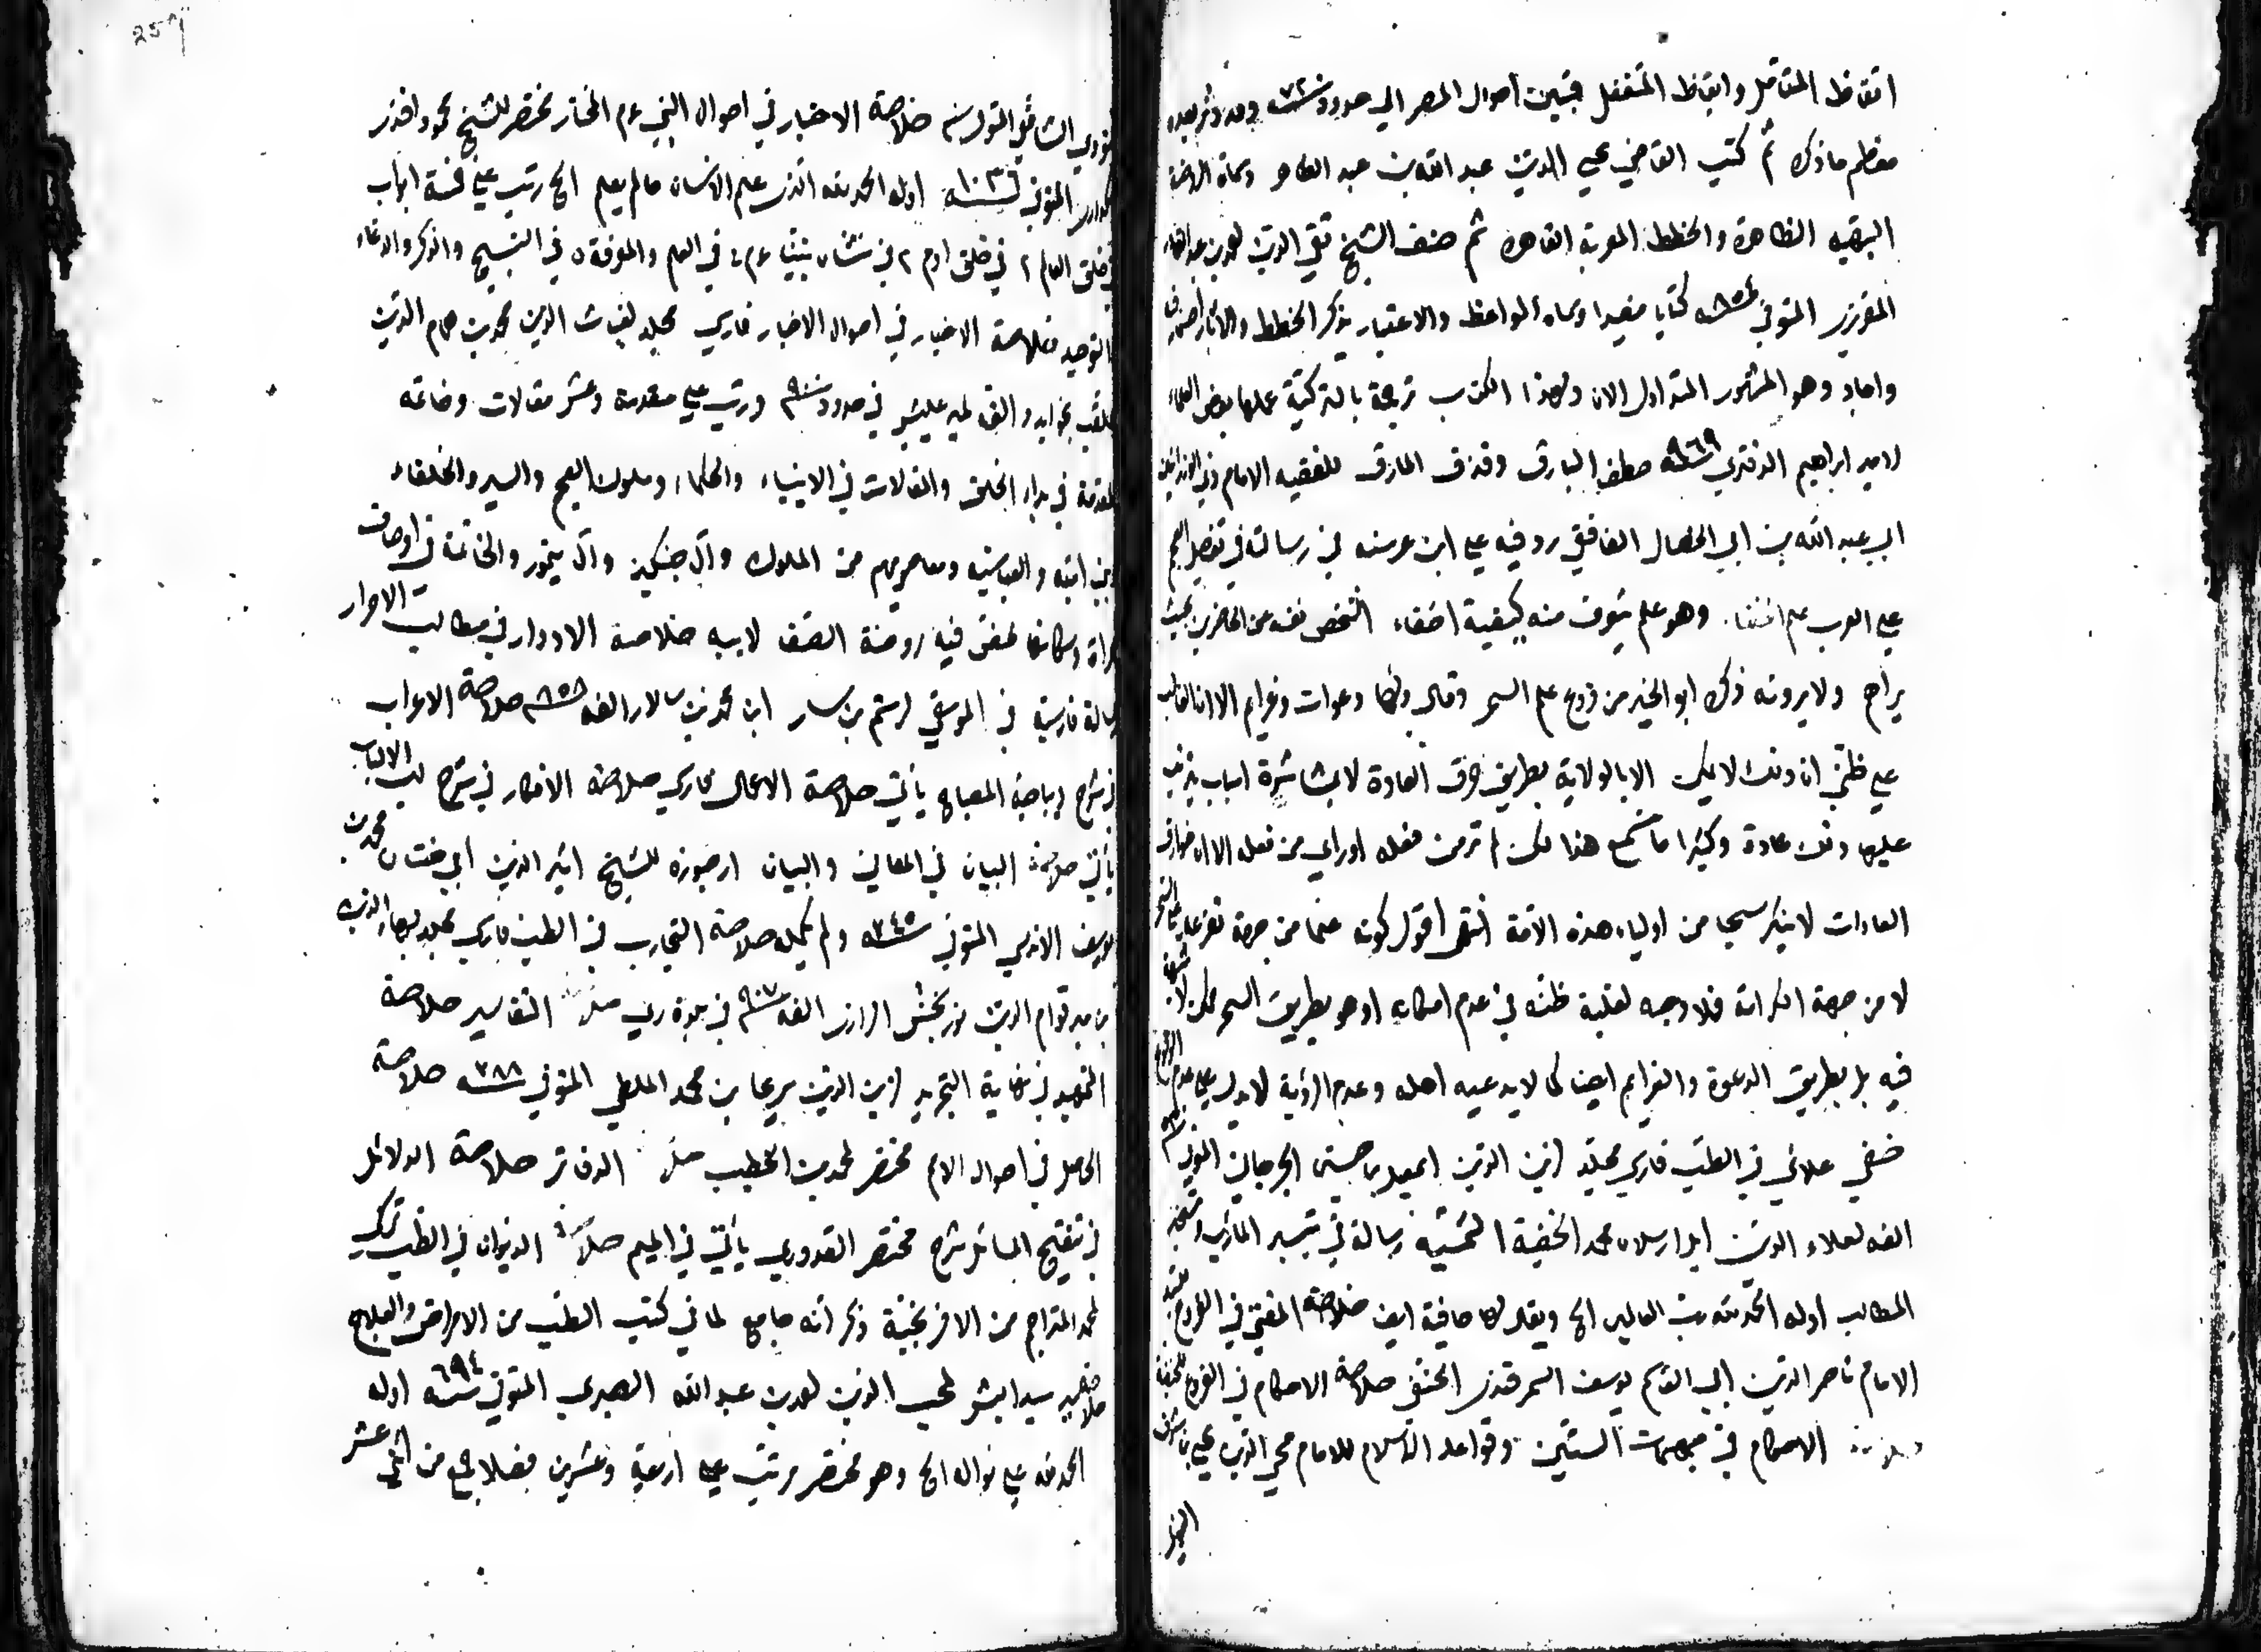 اتعاظ المتأمل وايقاظ المتغفل فبين احوال المصر الي حدود سنة ٧٢ وقد دثر بعده
معظم ما ذكره ثم كتب القاضي محيي الدين عبد الله بن عبد الظاهر وسماه الروضة
البهية الظاهرة والخطط المعزية القاهرة ثم صنف الشيخ تقي الدين احمد بن عبد القادر
المقريزي المتوفي سنة ٨٥٤ كتابا مفيدا وسماه المواعظ والاعتبار بذكر الخطط والاثار احسن فيه
واجاد وهو المشهور المتداول الان ولهذا الكتاب ترجمة بالتركية عملها بعض العلماء
لامير ابراهيم الدفتري سنة ٩٦٩ خطف البارق وقذف المارق للفقيه الامام ذي الوزارتين
ابي عبد الله بن ابي الخصال الغافقي رد فيه علي ابن غرسية في رسالته في تفضيل العجم
علي العرب علم اخفاء وهو علم يتعرف منه كيفية اخفاء الشخص نفسه عن الحاضرين بحيث
يراهم ولا يرونه ذكره ابو الخير من فروع علم السحر وقال ولها دعوات وعزايم الا ان الغالب
علي ظني ان ذلك لا يمكن الا بالولاية بطريق خرق العادة لا بمباشرة اسباب يترتب
عليها ذلك عادة وكثيرا ما نسمع هذا لكن لم نر من فعله او راي من فعله الا ان خوارق
العادات لا ينكر سيما من اولياء هذه الامة انتهي اقول كونه علما من جهة تفرعه علي السحر
لا من جهة الكرامة فلا وجه لغلبة ظنه في عدم امكانه اذ هو بطريق السحر ممكن لا شبهة
فيه بل بطريق الدعوة والعزايم ايضا كما لا يدعيه اهله وعدم الرؤية لا يدل علي عدم الوقوع
خفي علائي في الطب فارسي مجلد لزين الدين اسمعيل بن حسين الجرجاني المتوفي سنة
الفه لعلاء الدين ايل ارسلان محمد الخفية الشمسية رسالة في تيسير المآرب وتسخير
المطالب اوله الحمد لله رب العالمين الخ ويقال لها خافية ايضا خلاصة المفتي في الفروع للسيد
الامام ناصر الدين ابي القاسم يوسف السمرقندي الحنفي خلاصة الاحكام في الفروع للحنفية
خلاصة الاحكام في مهمات السنن وقواعد الاسلام للامام محيي الدين يحيي بن شرف
النووي
النووي الشافعي المتوفي سنة خلاصة الاخبار في احوال النبي ع م المختار مختصر للشيخ محمود افندي
الاسكداري المتوفي سنة ١٠٣ اوله الحمد لله الذي علم الانسان ما لم يعلم الخ رتب علي خمسة ابواب
في خلق العالم ٢ في خلق ادم ٣ في نشأة نبينا ع م ٤ في العلم والمعرفة ٥ في التسبيح والذكر والدعاء
والتوحيد خلاصة الاخبار في احوال الاخيار فارسي مجلد لغياث الدين محمد بن همام الدين
الملقب بخواند مير الفه لمير عليشير في حدود سنة ٩٠٠ ورتب علي مقدمة وعشر مقالات وخاتمة
المقدمة في بدء الخلق والمقالات في الانبياء والحكماء وملوك العجم والسير والخلفاء
وبني امية والعباسية ومعاصريهم من الملوك وآل جنكيز وآل تيمور والخاتمة في اوصاف
هراة وسكانها لخص فيه روضة الصفا لابيه خلاصة الادوار في مطالب الاحرار
رسالة فارسية في الموسيقي لرستم بن سار ابن محمد بن سالار الفه سنة ٨٥٨ خلاصة الاعراب
في شرح ديباجة المصباح يأتي خلاصة الاعمال فارسي خلاصة الافكار في شرح لب الالباب
يأتي خلاصة البيان في المعاني والبيان ارجوزة للشيخ اثير الدين ابي حيان محمد بن
يوسف الاندلسي المتوفي سنة ٧٤٥ ولم يكمله خلاصة التجارب في الطب فارسي مجلد لبهاء الدولة
بن مير قوام الدين نوربخش الرازي الفه سنة ٩٠٧ في بلدة ري خلاصة التفاسير خلاصة
التمهيد في نهاية التجريد لزين الدين سريجا بن محمد الملطي المتوفي سنة ٧٨٨ خلاصة
الحاصل في احوال الامم مختصر لمحمد بن الخطيب خلاصة الدفاتر خلاصة الدلائل
في تنقيح المسائل شرح مختصر القدوري يأتي في الميم خلاصة الديوان في الطب تركي
لمحمد المترجم من الافرنجية ذكر انه جامع لما في كتب الطب من الامراض والعلاج
خلاصة سير سيد البشر لمحب الدين احمد بن عبد الله الطبري المتوفي سنة ٦٩٤ اوله
الحمد لله علي نواله الخ وهو مختصر مرتب علي اربعة وعشرين فصلا جمع من اثني عشر